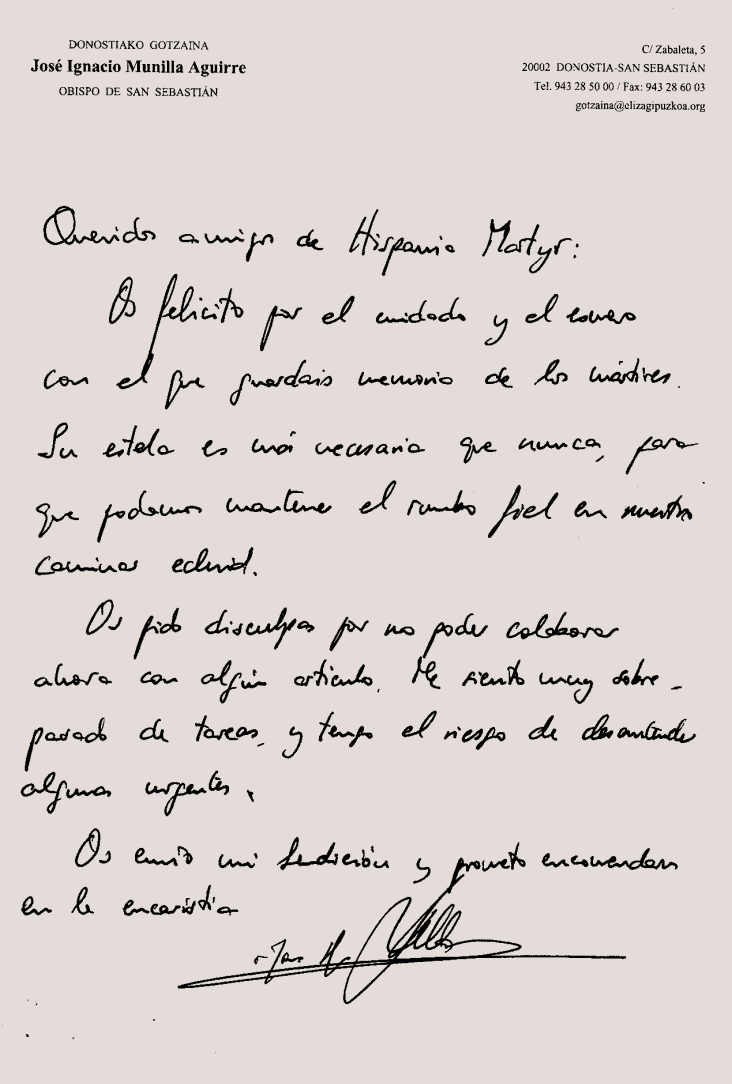 DONOSTIAKO GOTZAINA
José Ignacio Munilla Aguirre
OBISPO DE SAN SEBASTIÁN
C/ Zabaleta, 5
20002 DONOSTIA-SAN SEBASTIÁN
Tel. 943 28 50 00 / Fax: 943 28 60 03
gotzaina@elizagipuzkoa.org
Queridos amigos de Hispania Martyr:
Os felicito por el cuidado y el esmero
con el que guardais memoria de los mártires.
Su estela es más necesaria que nunca, para
que podamos mantener el rumbo fiel en nuestro
caminar eclesial.
Os pido disculpas por no poder colaborar
ahora con algún artículo. Me siento muy sobre-
pasado de tareas, y tengo el riesgo de desantender
algunas urgentes.
Os envío mi bendición y prometo encomendaros
en la eucaristía